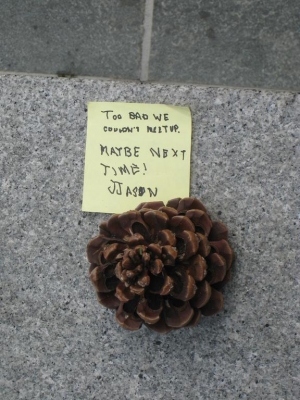 TOO BAD WE
COULDN'T MEET UP.
MAYBE NEXT
TIME!
JJASON